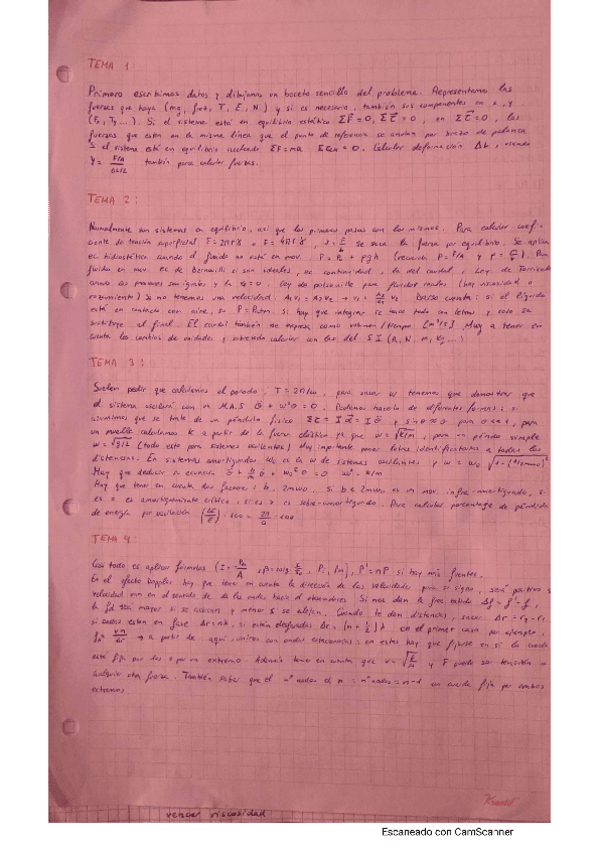 TEMA 1
Primero escribimos datos y dibujamos un boceto sencillo del problema. Representamos las
fuerzas que haya (mg, froz, T, E, N.) y si es necesario, también sus componentes en x, y
(Fx, Ty...). Si el sistema está en equilibrio estático ΣF = 0, Στ = 0, en Στ = 0, las
fuerzas que esten en la misma línea que el punto de referencia se anulan por brazo de palanca
Si el sistema está en equilibrio acelerado ΣF = ma Στcm = 0. Calcular deformación ΔL, usando
Y = F/A / ΔL/L también para calcular fuerzas.
TEMA 2:
Normalmente son sistemas en equilibrio, así que los primeros pasos son los mismos. Para calcular coefi-
ciente de tensión superficial se saca la fuerza por equilibrio. Se aplica
ec hidrostática cuando el fluido no está en mov. P = P0 + ρgh (recuerda P = F/A y ρ = ). Para
fluido en mov. ec de Bernoulli si son ideales, ec continuidad, la del caudal, Ley de Torricelli
cuando las presiones son iguales y la = 0. Ley de poiseuille para fluidos reales (hay viscosidad o
rozamiento) Si no tenemos una velocidad: A1V1 = A2V2 → Darse cuenta: si el líquido
está en contacto con aire, su P = Patm. Si hay que integrar se saca todo con letras, y solo se
sustituye al final. El caudal también se expresa como volumen/tiempo [m³/s]. Muy a tener en
cuenta los cambios de unidades y sobretodo calcular con las del SI (Pa, N, m, kg, ...)
TEMA 3:
Suelen pedir que calculemos el periodo: T = 2π/ω, para sacar ω tenemos que demostrar que
el sistema oscilará con un M.A.S θ̈ + ω²θ = 0. Podemos hacerlo de diferentes formas: si
asumimos que se trata de un péndulo físico Στ = Iα = Iθ̈ y sinθ≈θ para , para
un muelle calculamos K a partir de la fuerza elástica ya que ω = √k/m, para un péndulo simple
ω = √g/L (todo esto para sistemas oscilantes) Muy importante poner letras identificatorias a todas las
distancias. En sistemas amortiguados ω0 es la ω de sistemas oscilantes y ω = ω0
Hay que deducir la ecuación
Hay que tener en cuenta dos factores: b, 2mω0. Si b < 2mω0 es un mov. infra-amortiguado, si
es = es amortiguamiento crítico, si es > es sobre-amortiguado. Para calcular porcentaje de pérdida
de energía por oscilación (ΔE/E) · 100 = · 100
TEMA 4:
Casi todo es aplicar fórmulas , si hay más fuentes.
En el efecto Doppler hay que tener en cuenta la dirección de las velocidades para su signo, será positivo si
velocidad van en el sentido de de las ondas hacia el observador. Si nos dan la frec. batido Δf = f - f,
la fd será mayor si se acercan y menor si se alejan. Cuando te dan distancias, sacar Δr = r2 - r1,
si ondas estan en fase Δr = nλ, si están desfasadas Δr = (n + 1/2)λ, en el primer caso por ejemplo,
→ a partir de aquí, ondas estacionarias: en estas hay que fijarse en si la cuerda
está fija por dos o por un extremo. Además tener en cuenta que y F puede ser tensión o
cualquier otra fuerza. También saber que el nº nodos el en cuerda fija por ambos
extremos.
vencer viscosidad
Escaneado con CamScanner